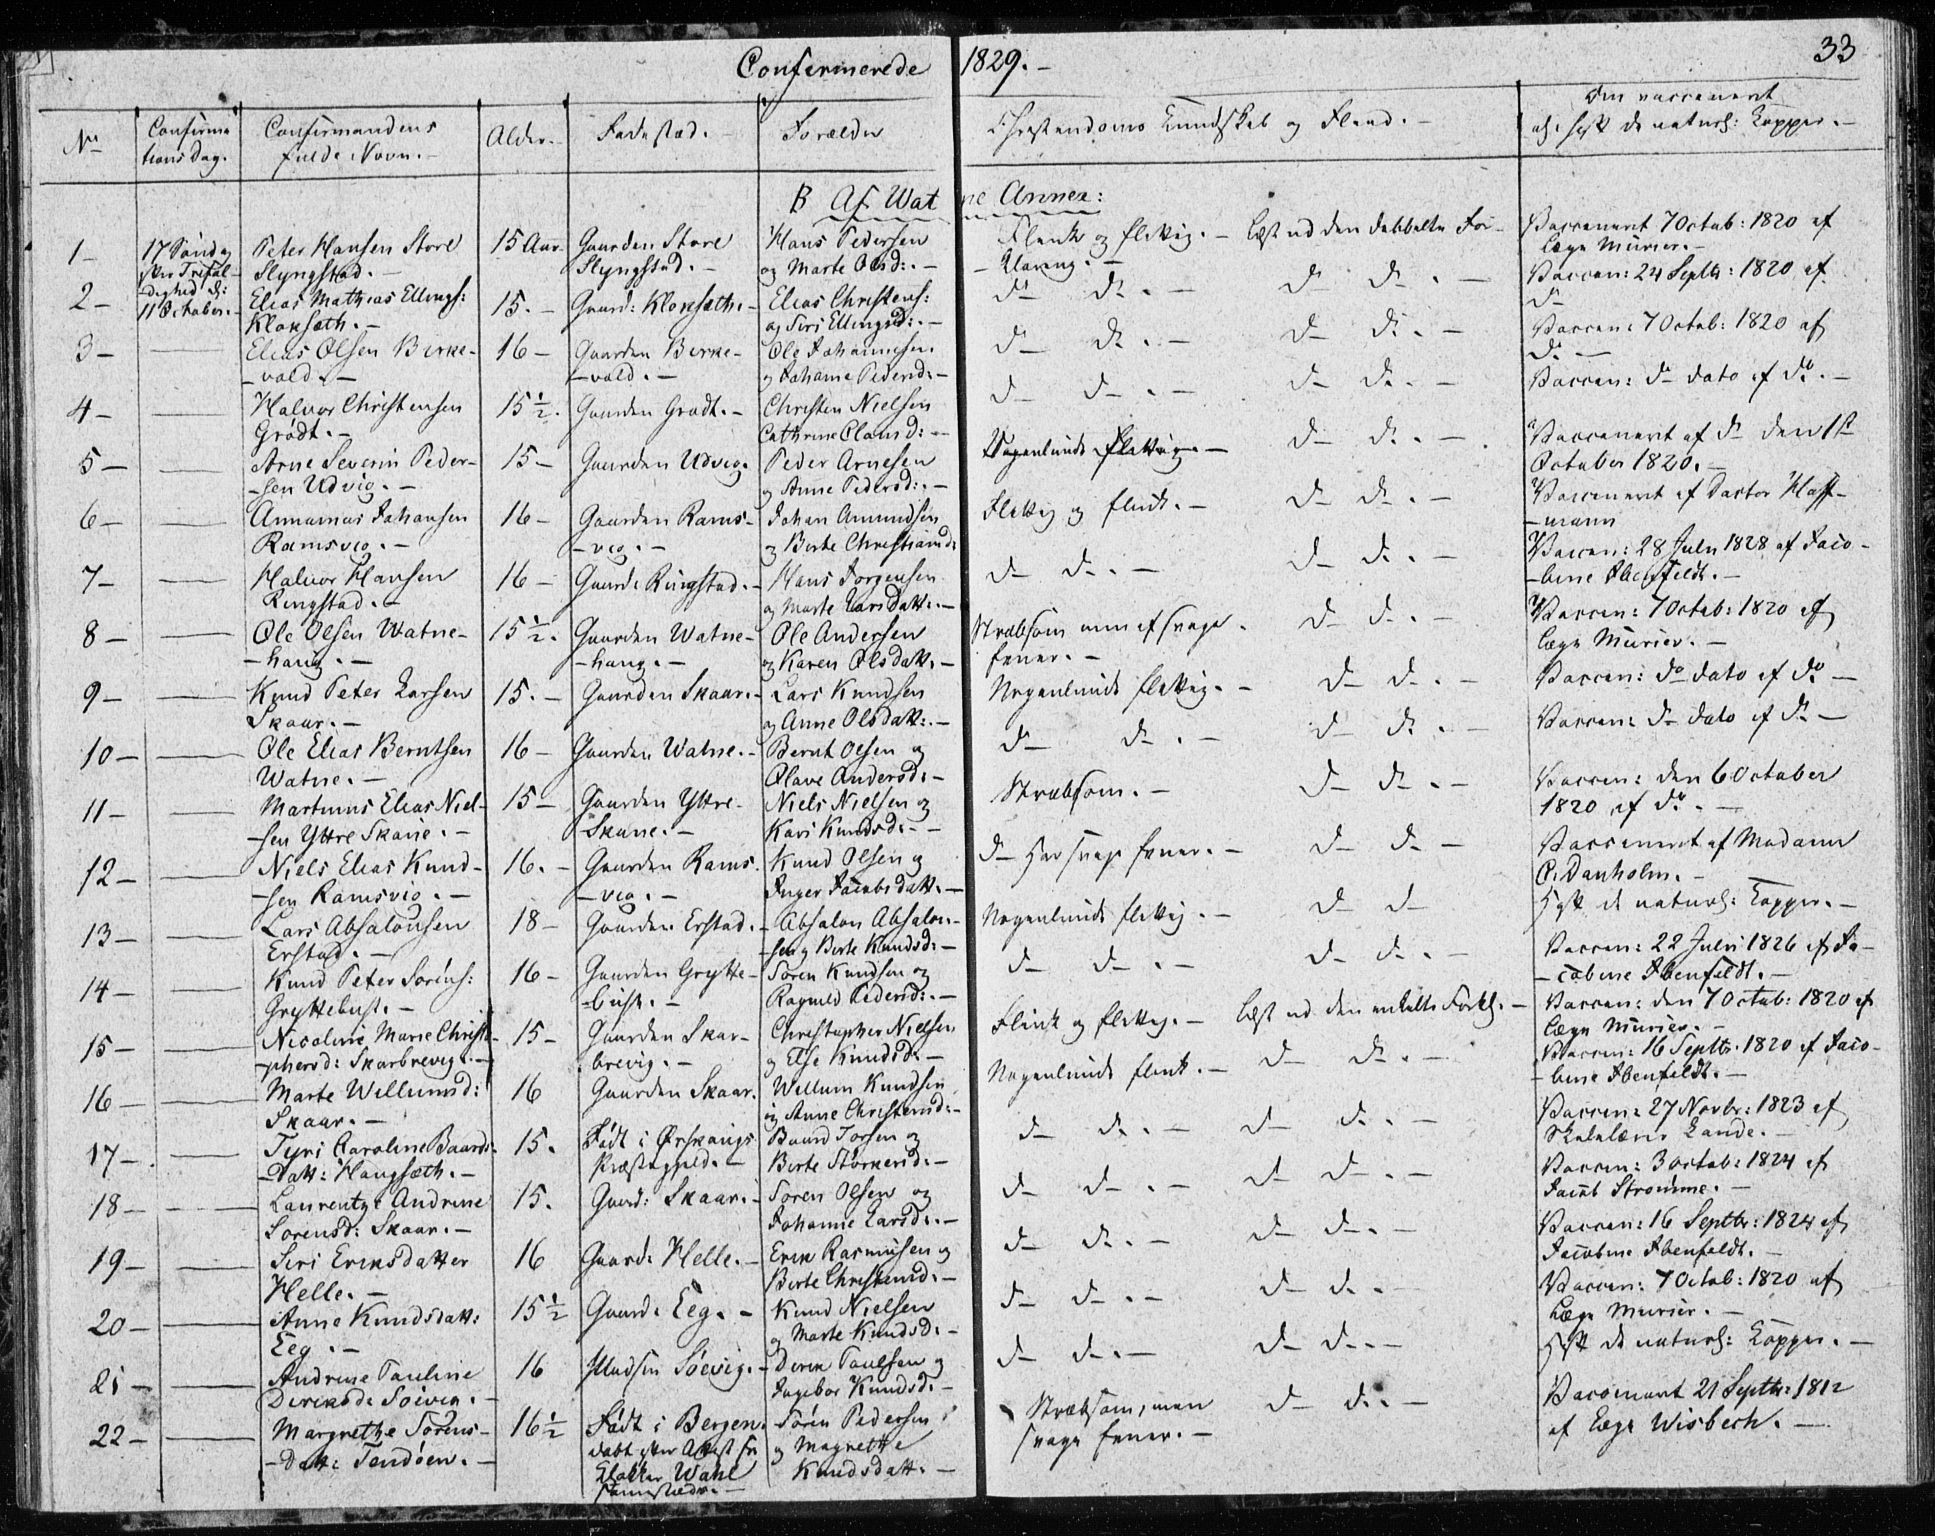 Confirmerede 1829.- 33
No Confirmationsdag. Confirmandens fulde Navn.- Alder.- Fødested.- Forældre Christendoms Kundskab og Fliid.- Om vaccineret el: havt de naturl: Kopper.-
B Af Watne Annex:
1- 17 Søndag efter Trefoldighed d: 11 October.- Peter Hansen Store Slyngstad.- 15 Aar Gaarden Store Slyngstad.- Hans Pedersen og Marte Olsd:.- Flink og flittig.- læst ud den dobbelte Forklaring.- Vaccineret 7 Octob: 1820 af Læge Murier.-
2- Elias Mathias Ellings: Kloksæth.- 15.- Gaard: Kloksæth.- Elias Christens: og Siri Ellingsd:.- do do.- do do.- Vaccin: 24 Septbr: 1820 af do
3- Elias Olsen Birkevold.- 16- Gaarden Birkevold.- Ole Johannesen og Johanne Pedersd:- do do.- do do.- Vaccin: 7 Octob: 1820 af do.-
4- Halvor Christensen Grødt.- 15½. Gaarden Grødt.- Christen Nielsen Cathrine Clausd:- do do.- do do.- Vaccin: do dato af do.-
5- Arne Severin Pedersen Udvig.- 15- Gaarden Udvig. Peder Arnesen og Anne Pedersd:.- Nogenlunde flittig.- do do.- Vaccineret af do den 1ste October 1820.-
6- Johansen Ramsvig.- 16- Gaarden Ramsvig.- Johan Amundsen og Birte Christiansd: Flittig og flink.- do do.- Vaccineret af Doctor Hoffmann
7- Halvor Hansen Ringstad.- 16- Gaard: Ringstad.- Hans Jørgensen og Marte Larsdatt:.- do do.- do do.- Vaccin: 28 Juli 1828 af Jacobine Ibenfeldt.-
8- Ole Olsen Watnehaug.- 15½. Gaarden Watnehaug.- Ole Andersen og Karen Olsdatt.- Stræbsom men af svage Evner.- do do.- Vaccin: 7 Octob: 1820 af Læge Murier.-
9- Knud Peter Larsen Skaar.- 15.- Gaarden Skaar.- Lars Knudsen og Anne Olsdatt:.- Nogenlunde flittig.- do do.- Vaccin: do dato af do-
10- Ole Elias Berntsen Watne.- 16- Gaarden Watne.- Bernt Olsen og Olave Andersd:- do do.- do do.- Vaccin: do dato af do-
11- Martinus Elias Nielsen Yttre Skane.- 15- Gaarden Yttre Skane.- Niels Nielsen og Kari Knudsd:- Stræbsom.- do do.- Vaccin: den 6 October 1820 af do.-
12- Niels Elias Knudsen Ramsvig.- 16.- Gaarden Ramsvig.- Knud Olsen og Inger Jacobsdatt.- do har svage Evner.- do do- Vaccineret af Madame C. Danholm.-
13- Lars Absalonsen Erstad.- 18- Gaarden Erstad.- Absalon Absalonsen og Birte Knudsd:- Nogenlunde flittig.- do do havt de naturl: Kopper.-
14- Knud Peter Sørens: Gryttebust.- 16- Gaarden Gryttebust.- Søren Knudsen og Ragnild Pedersd:.- do do.- do do.- Vaccin: 22 Juli 1826 af Jacobine Ibenfeldt.-
15- Nicoline Marie Christophersd: Skarbrevig.- 15- Gaarden Skarbrevig.- Christopher Nielsen og Else Knudsd:- Flink og flittig.- læst ud den enkelte Forkl.- Vaccin: den 7 Octob: 1820 af Læge Murier.-
16- Marte Willumsd: Skaar.- 16 Gaarden Skaar. Willum Knudsen og Anne Christensd:- Nogenlunde flink.- do do.- Vaccin: 16 Septbr: 1820 af Jacobine Ibenfeldt.-
17- Tyri Caroline Baards-Datt: Haugsæth.- 15. Født i Ørskaugs Præstegield.- Baard Torsen og Birte Størkersd.- do do.- do do.- Vaccin: 27 Novbr: 1823 af Skolelærer Lande.-
18- Laurentze Andrine Sorensd: Skaar.- 15. Gaard: Skaar.- Soren Olsen og Johanne Larsd:.- do do.- do do.- Vaccin: 3 Octob: 1824 af Jacob Stromme.-
19- Siri Eriksdatter Helle.- 16 Gaard: Helle.- Erik Rasmusen og Birte Christensd:- do do.- do do.- Vaccin: 16 Septbr: 1824 af Jacobine Ibenfeldt.-
20- Anne Knudsdatt: Eeg.- 15½ Gaard: Eeg.- Knud Nielsen og Marte Knudsd:- do do.- do do.- Vaccin: 7 Octob: 1820 af Læge Murier.-
21- Andrine Pauline Diriksd: Soevig.- 16 Pladsen Söevig.- Dirik Paulsen og Ingebor Knudsd:- do do.- do do.- havt de naturl: Kopper.-
22- Margrethe Sørens-Datt: Tendöen.- 16½ Født i Bergen. døbt efter Attest fra Klokker Wahl sammesteds.- Søren Pedersen og Magrethe Knudsdatt.- Stræbsom, men svage Evner.- do do.- Vaccineret 21 Septbr: 1812 af Læge Wisbech.-